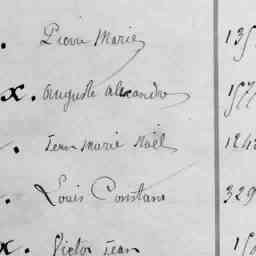 . Pierre Marie 135
x. Auguste Alexandre
. Jean Marie Noël 124
. Louis Constant 329
x. Victor Jean